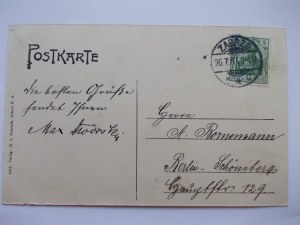 POSTKARTE
ZABRZE
Die besten Grüße
sendet Ihnen
Max
Herrn
A. Bornemann
Berlin-Schöneberg
Hauptstr. 129